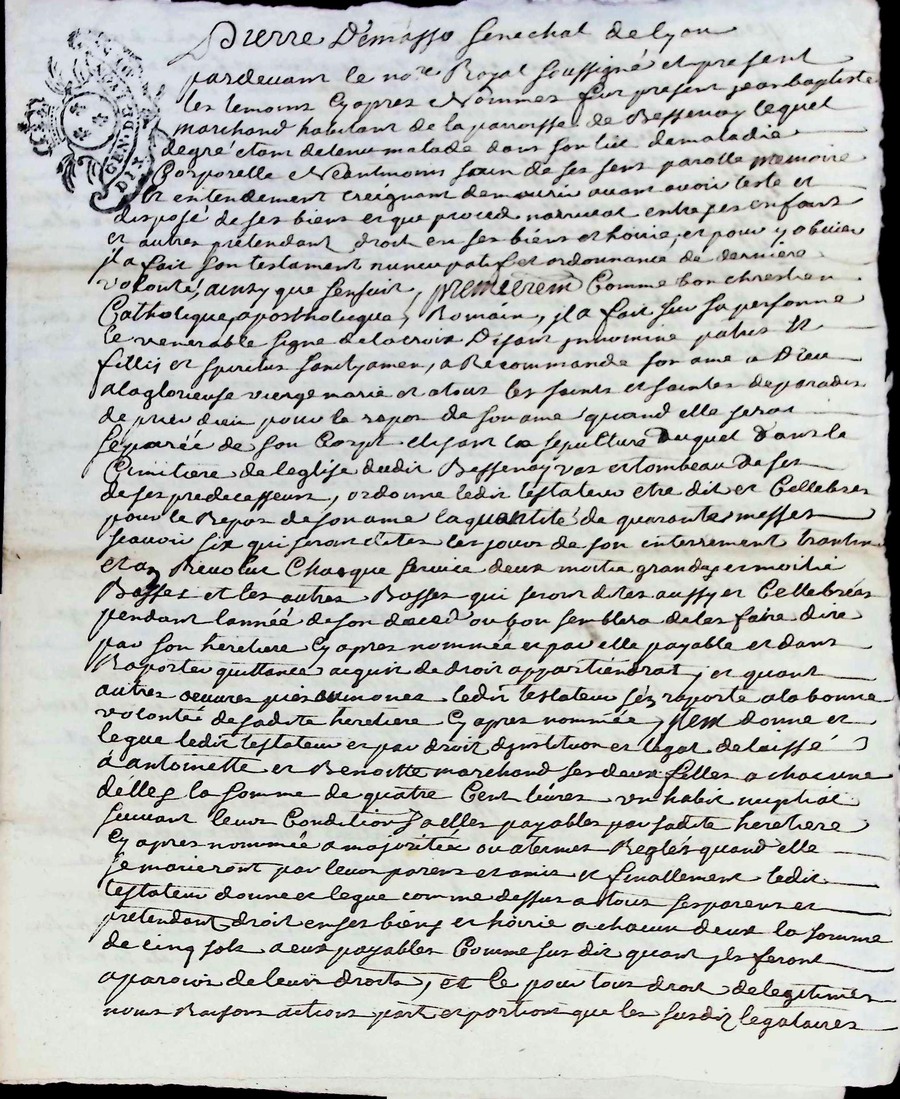 Pierre Démasso Senechal de Lyon
pardevant le nore Royal soussigné et present
les temoins Cyapres Nommes fut present jean baptiste
marchand habitant de la parroisse de Bessenay lequel
degré étant detenu malade dans son lit de maladie
Corporelle et Neantmoins sain de ses sens parolle memoire
et entendement creignant de mourir avant avoir testé et
disposé de ses biens et que proced narrivat entre ses enfans
et autres prétendant droit en ses biens et hoirie, et pour y obvier
jl a fait son testament nuncupatif et ordonnance de derniere
volonté, ainsy que sensuit, premierem Comme bon chrestien
Catholique, apostholique, Romain, jl a fait sur sa personne
le venerable signe de la croix Disant jnnomine patris et
fillij et spiritus sancty amen, a Recommande son ame a Dieu
a la glorieuse vierge marie et a tous les saints et saintes de paradis
de prier dieu pour le repos de son ame quand elle serat
separée de son Corps elisant la sepulture duquel dans le
Cimitiere de leglise dudit Bessenay vas et tombeau de ses
de ses predecasseurs, ordonne ledit testateur etre dit et Cellebrés
pour le Repos de son ame la quantité de quarante messes
scavoir six qui seront dites les jours de son enterrement trantin
et an Revolut Chasque service deux moitie grandes et moitié
Basses et les autres Basses qui seront dites aussy et Cellebrées
pendant lannéé de son decéd ou bon semblera de les faire dire
par son heretiere Cyapres nommée et par elle payable et dans
Raporter quittance acquit de droit appartiendrat, et quant
autres oeuvres pies aumones ledit testateur sen raporte a la bonne
volontée de sadite heretiere Cyapres nommée, jtem donne et
legue ledit testateur et par droit djnstitution et legat delaissé
á antoinette et Benoitte marchand ses deux filles a chacune
délles la somme de quatre Cent livres un habit nuptial
suivant leurs Condition a elles payables par sadite heretiere
Cyapres nommée a majoritée ou a termes Reglés quand elle
se marieront par leurs parens et amis et finallement ledit
testateur donne et legue comme dessus a tous ses parens et
prétendant droit en ses biens et hoirie a chacun deux la somme
de cinq sols a eux payables Comme susdit quant jls feront
aparoir de leurs droits, et le pour tous droit de legitimes
noms Raisons actions part et portions que les susdit legataires
GEN. DE
DIX